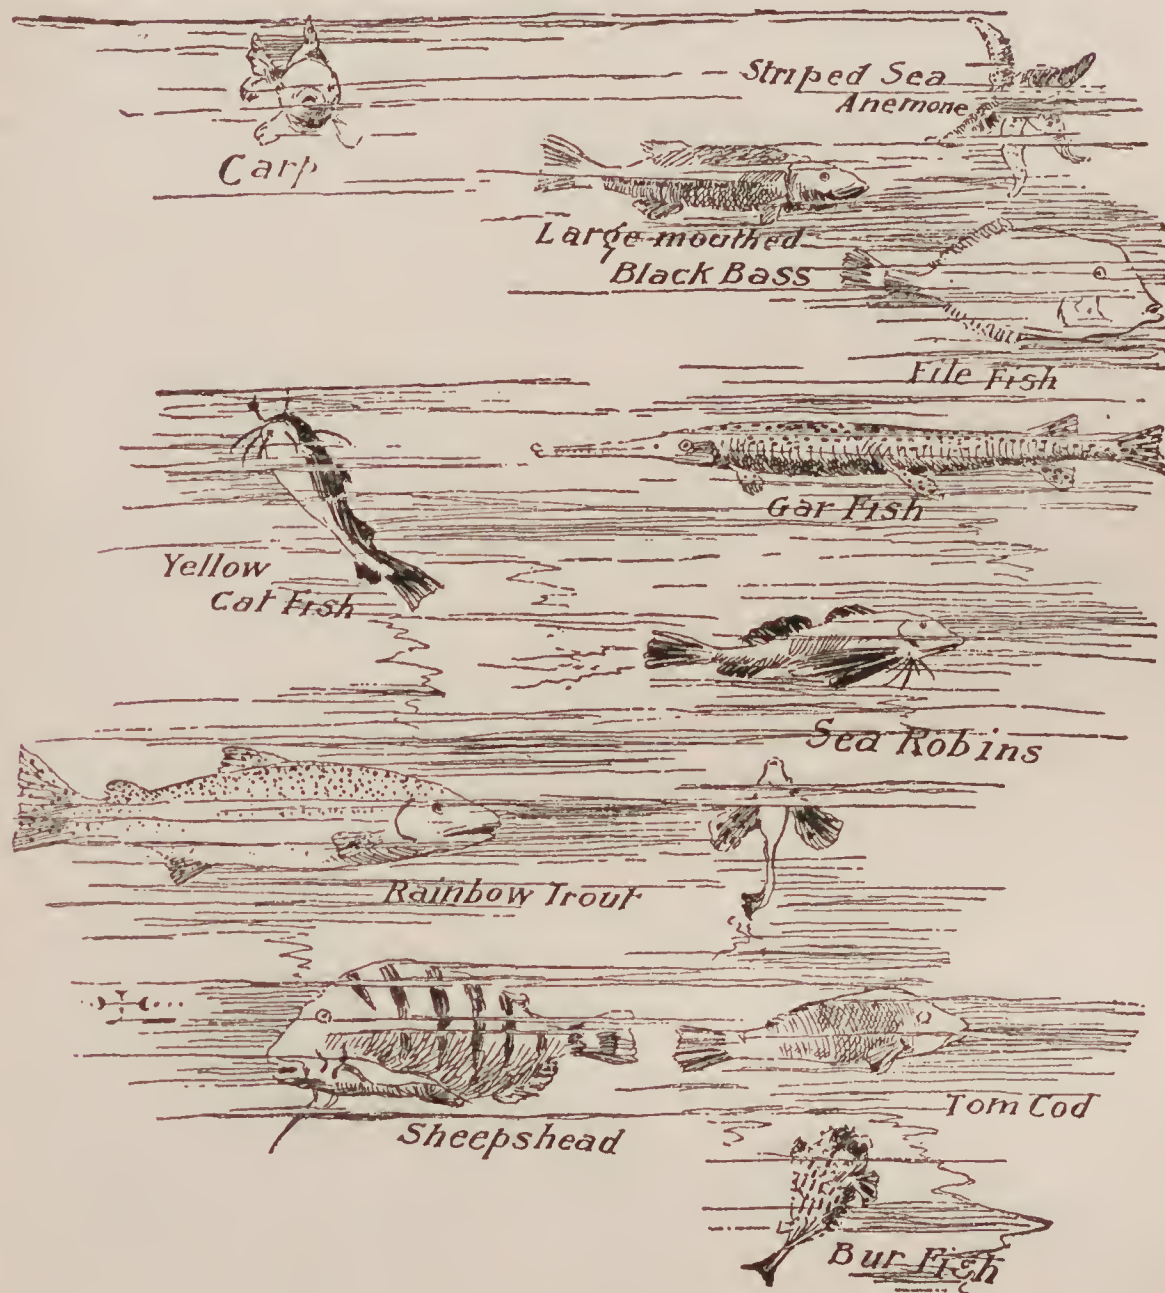 Carp
Striped Sea
Anemone
Large-mouthed
Black Bass
File Fish
Gar Fish
Yellow
Cat Fish
Sea Robins
Rainbow Trout
Sheepshead
Tom Cod
Bur Fish